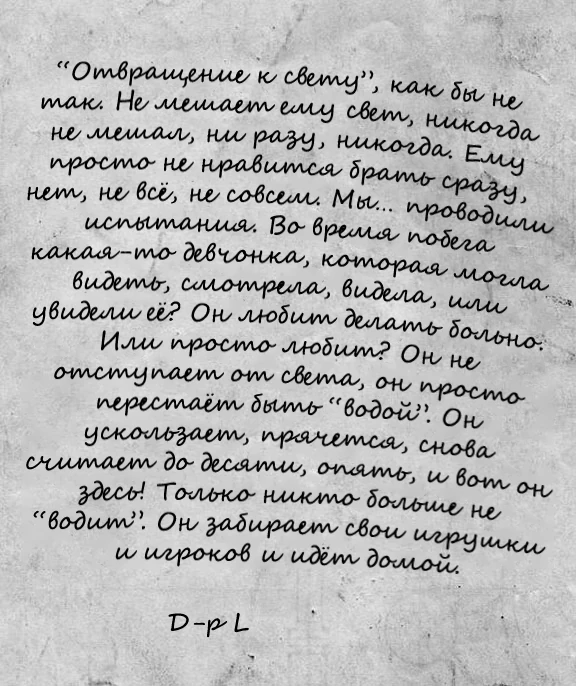 “Отвращение к свету”, как бы не
так. Не мешает ему свет, никогда
не мешал, ни разу, никогда. Ему
просто не нравится брать сразу,
нет, не всё, не совсем. Мы... проводили
испытания. Во время побега
какая-то девчонка, которая могла
видеть, смотрела, видела, или
увидели её? Он любит делать больно.
Или просто любит? Он не
отступает от света, он просто
перестаёт быть “водой”. Он
ускользает, прячется, снова
считает до десяти, опять, и вот он
здесь! Только никто больше не
“водит”. Он забирает свои игрушки
и игроков и идёт домой.
D-р L